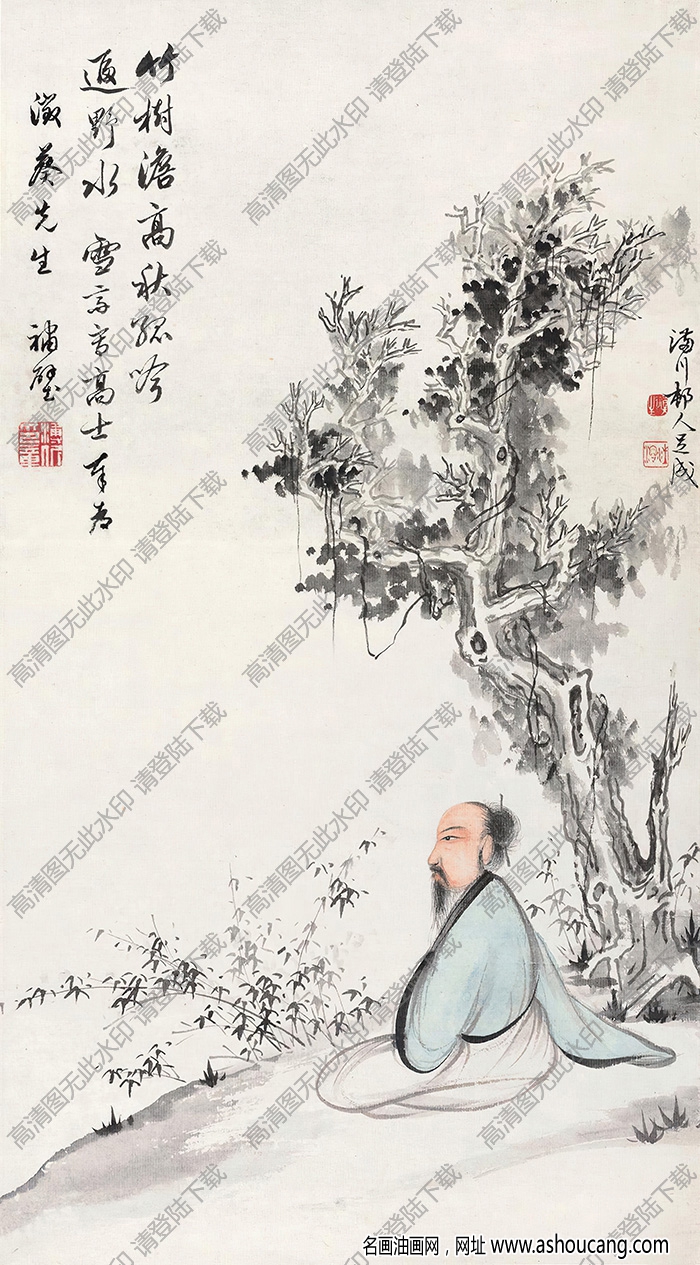 竹樹澹高秋孤吟
野水 雪高士奉为
澂葵先生 補壁
川人足成
高清图无此水印 请登陆下载
名画油画网，网址 www.ashoucang.com